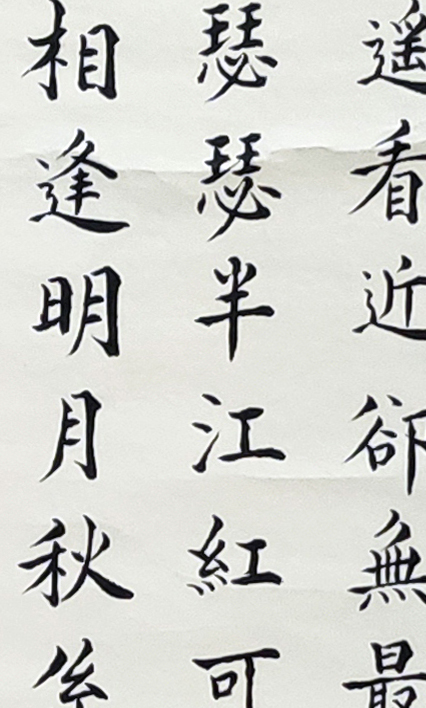 遙看近卻無最
瑟瑟半江紅可
相逢明月秋